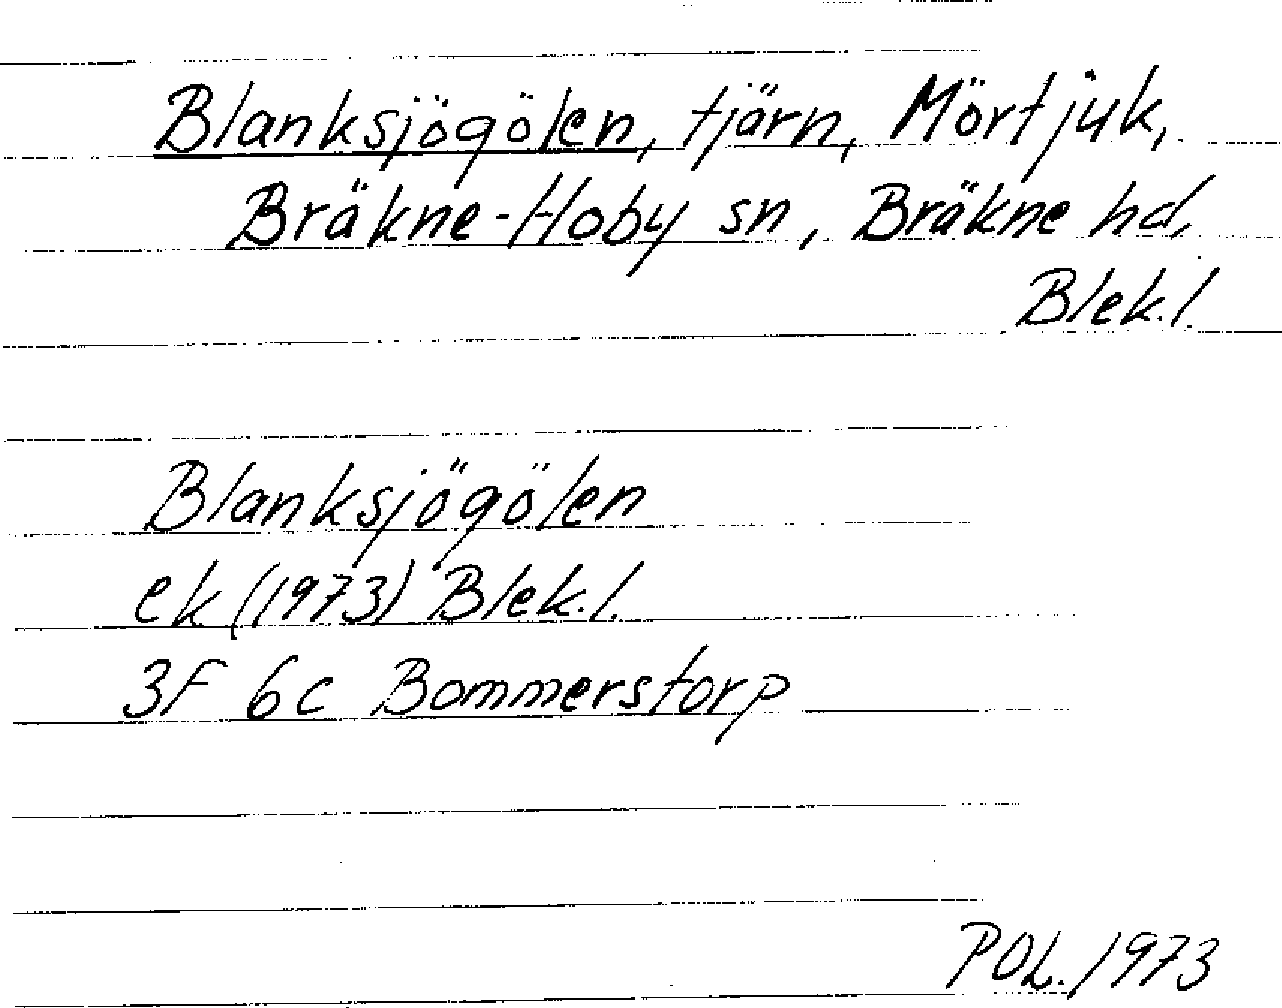 Blanksjögölen, tjärn, Mörtjuk,
Bräkne-Hoby sn, Bräkne hd,
Blek.l.
Blanksjögölen
ek (1973) Blek.l.
3F 6c Bommerstorp
POL. 1973